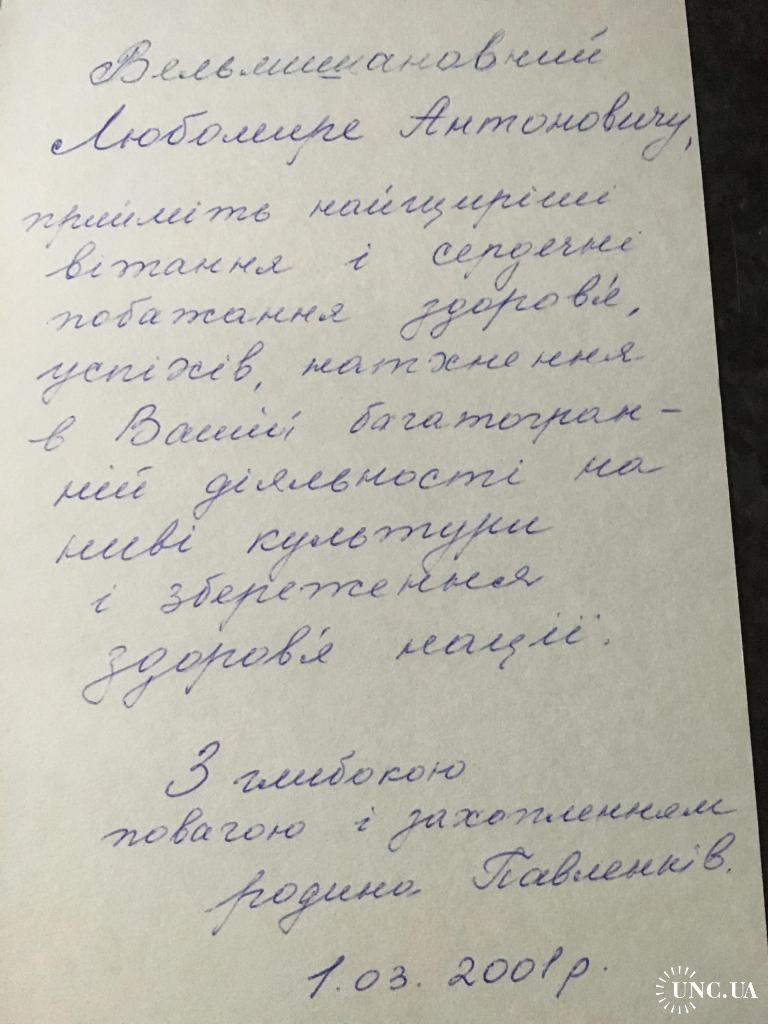 Вельмишановний
Любомире Антоновичу,
прийміть найщиріші
вітання і сердечні
побажання здоров'я,
успіхів, натхнення
в Вашій багатогран-
ній діяльності на
ниві культури
і збереження
здоров'я нації.
З глибокою
повагою і захопленням
родина Павленків.
1.03.2001 р.
UNC.UA